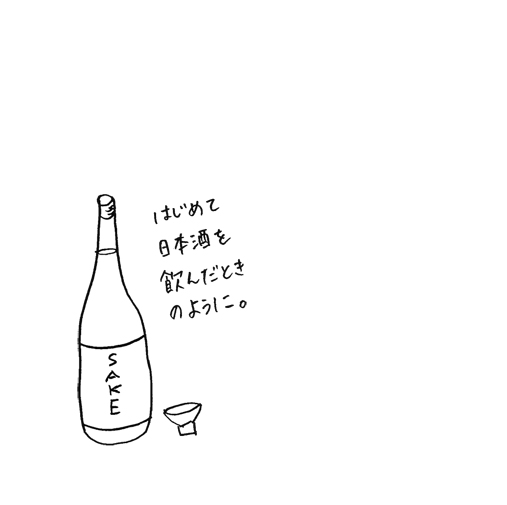 はじめて
日本酒を
飲んだとき
のように。
SAKE